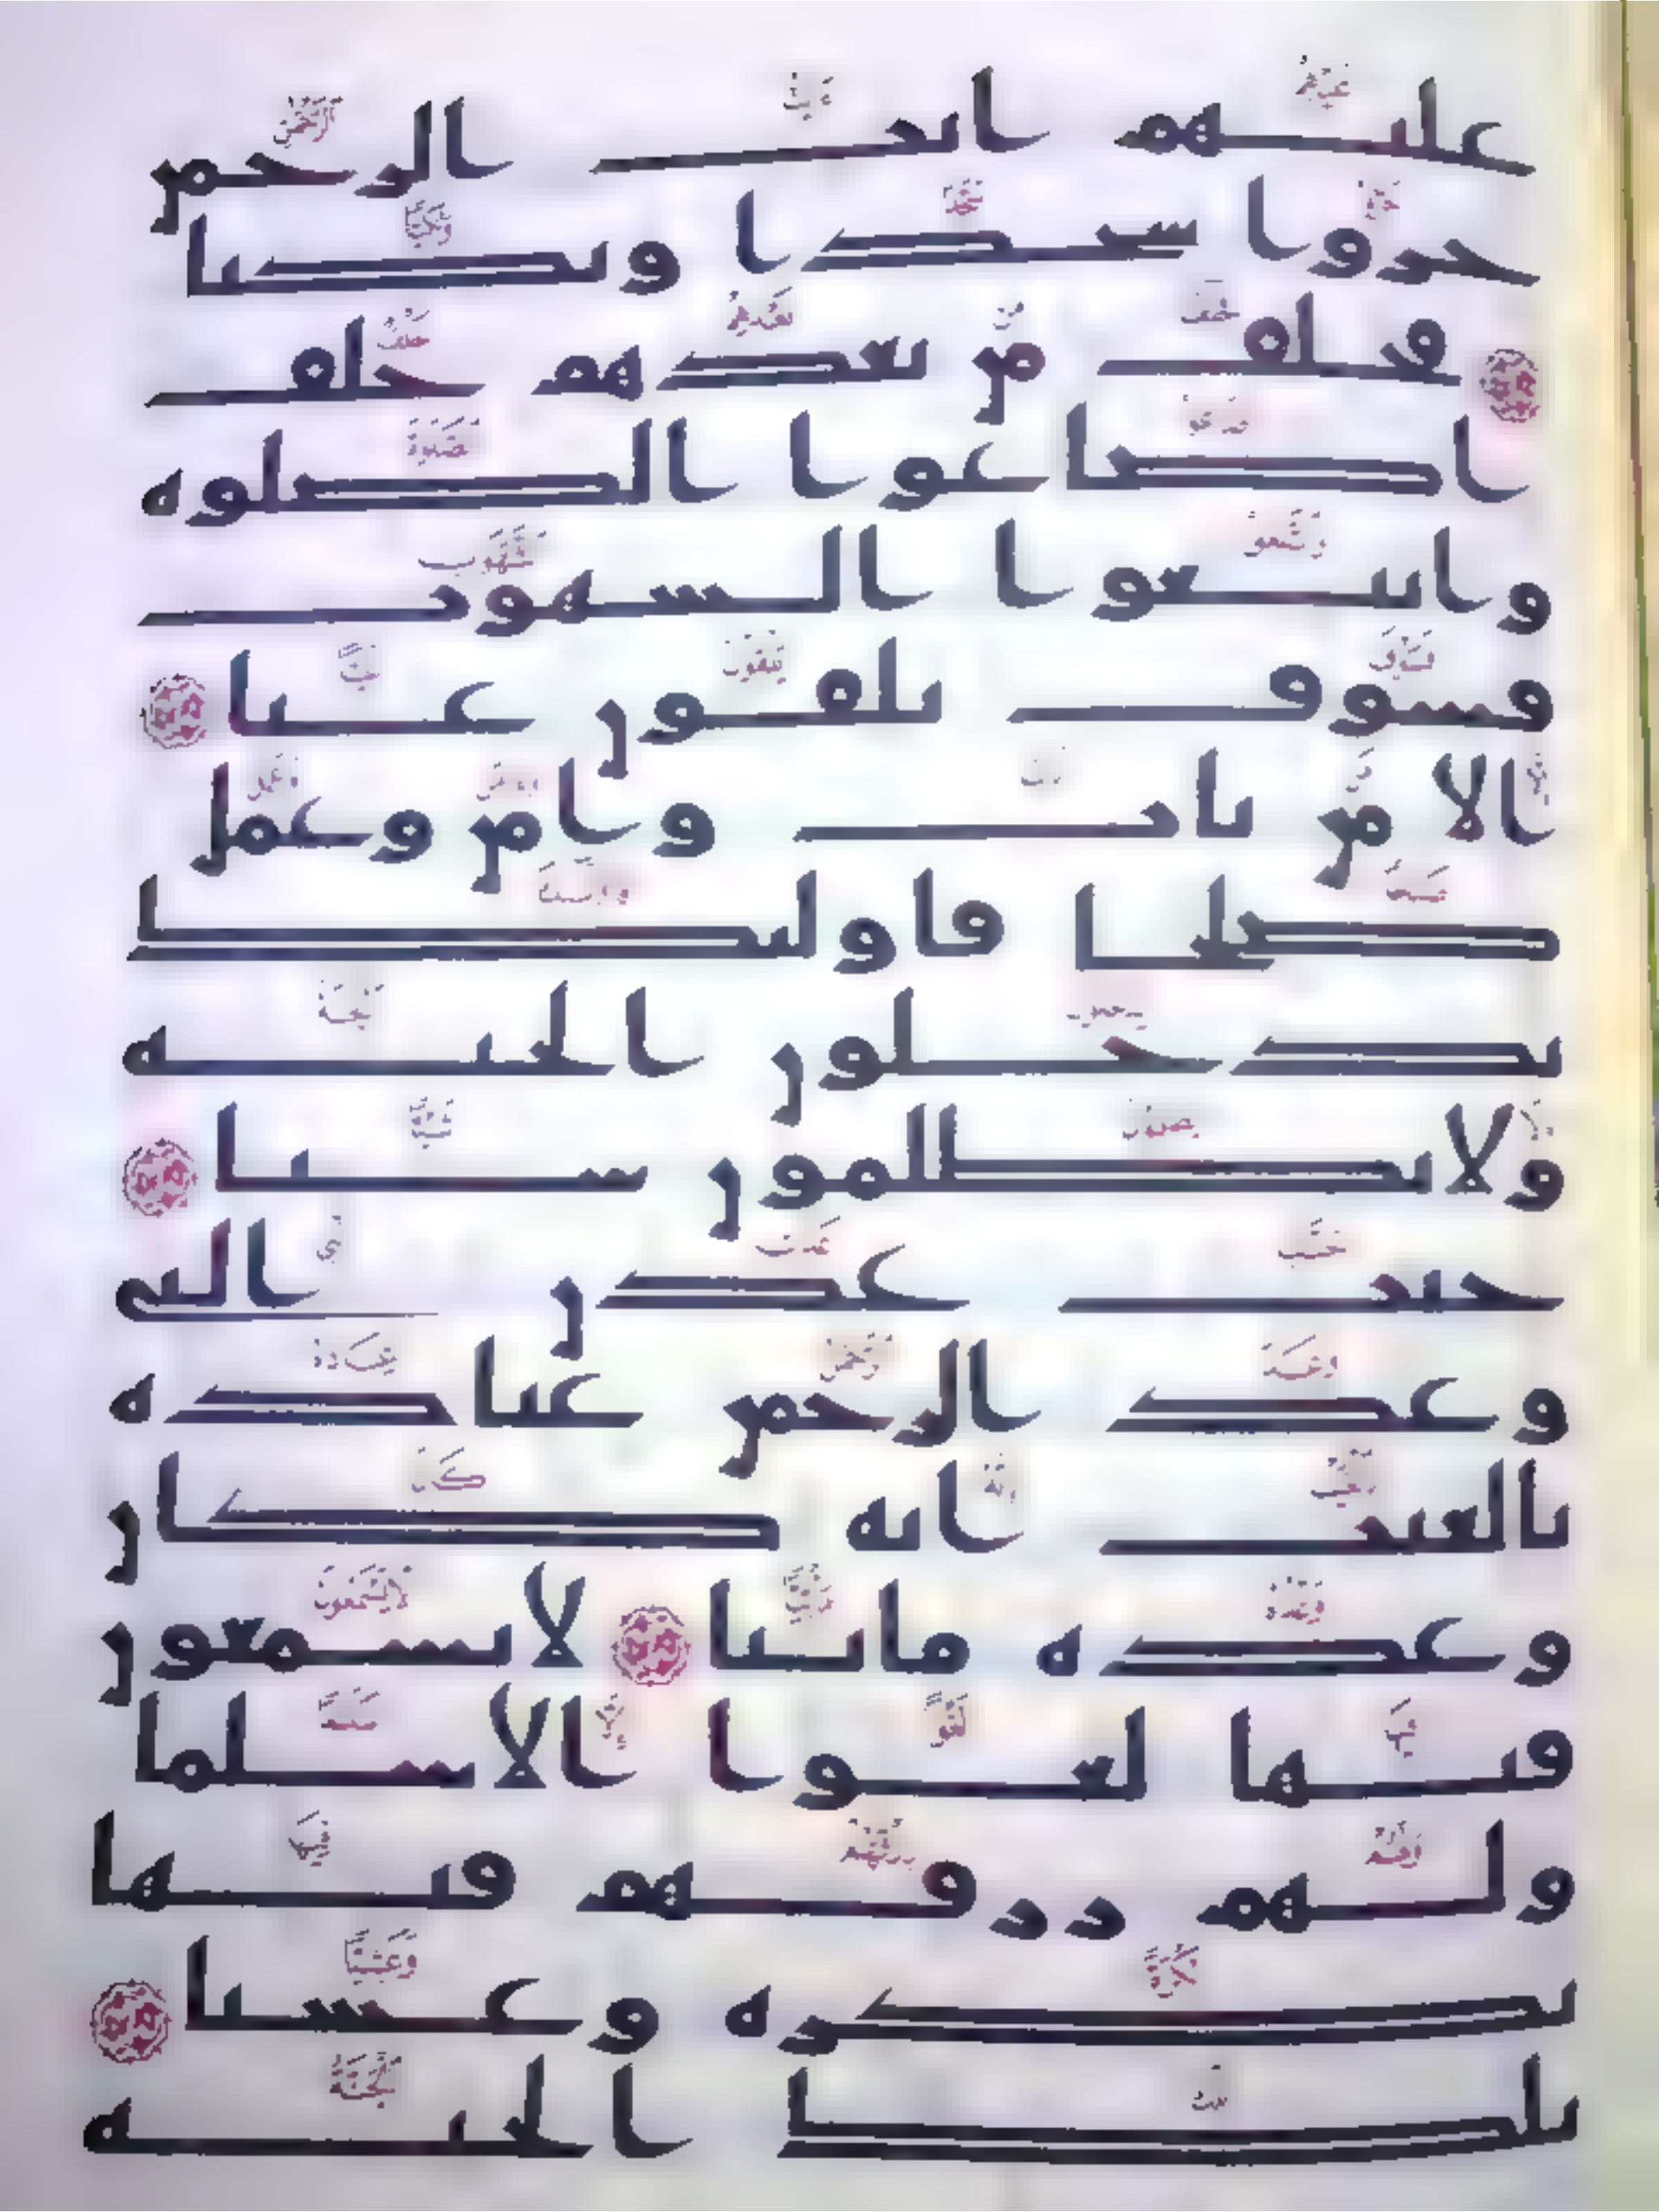 عليهم ايت الرحمن
خروا سجدا وبكيا
فخلف من بعدهم خلف
اضاعوا الصلوه
واتبعوا الشهوت
فسوف يلقون غيا
الا من تاب وامن وعمل
صلحا فاوليك
يدخلون الجنه
ولا يظلمون شيا
جنت عدن التي
وعد الرحمن عباده
بالغيب انه كان
وعده ماتيا لا يسمعون
فيها لغوا الا سلما
ولهم رزقهم فيها
بكره وعشيا
تلك الجنه